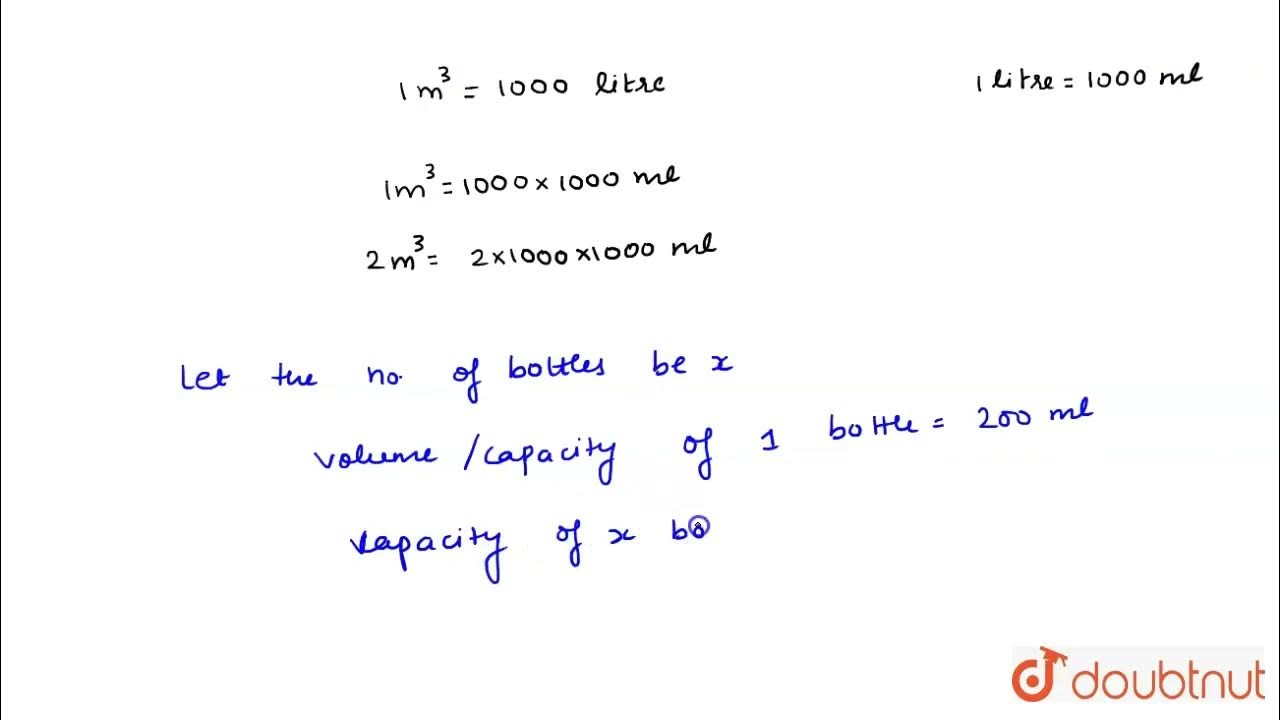 1m³ = 1000 litre
1 litre = 1000 ml
1m³ = 1000 × 1000 ml
2m³ = 2×1000×1000 ml
Let the no. of bottles be x
volume /capacity of 1 bottle = 200 ml
capacity of x bo
doubtnut